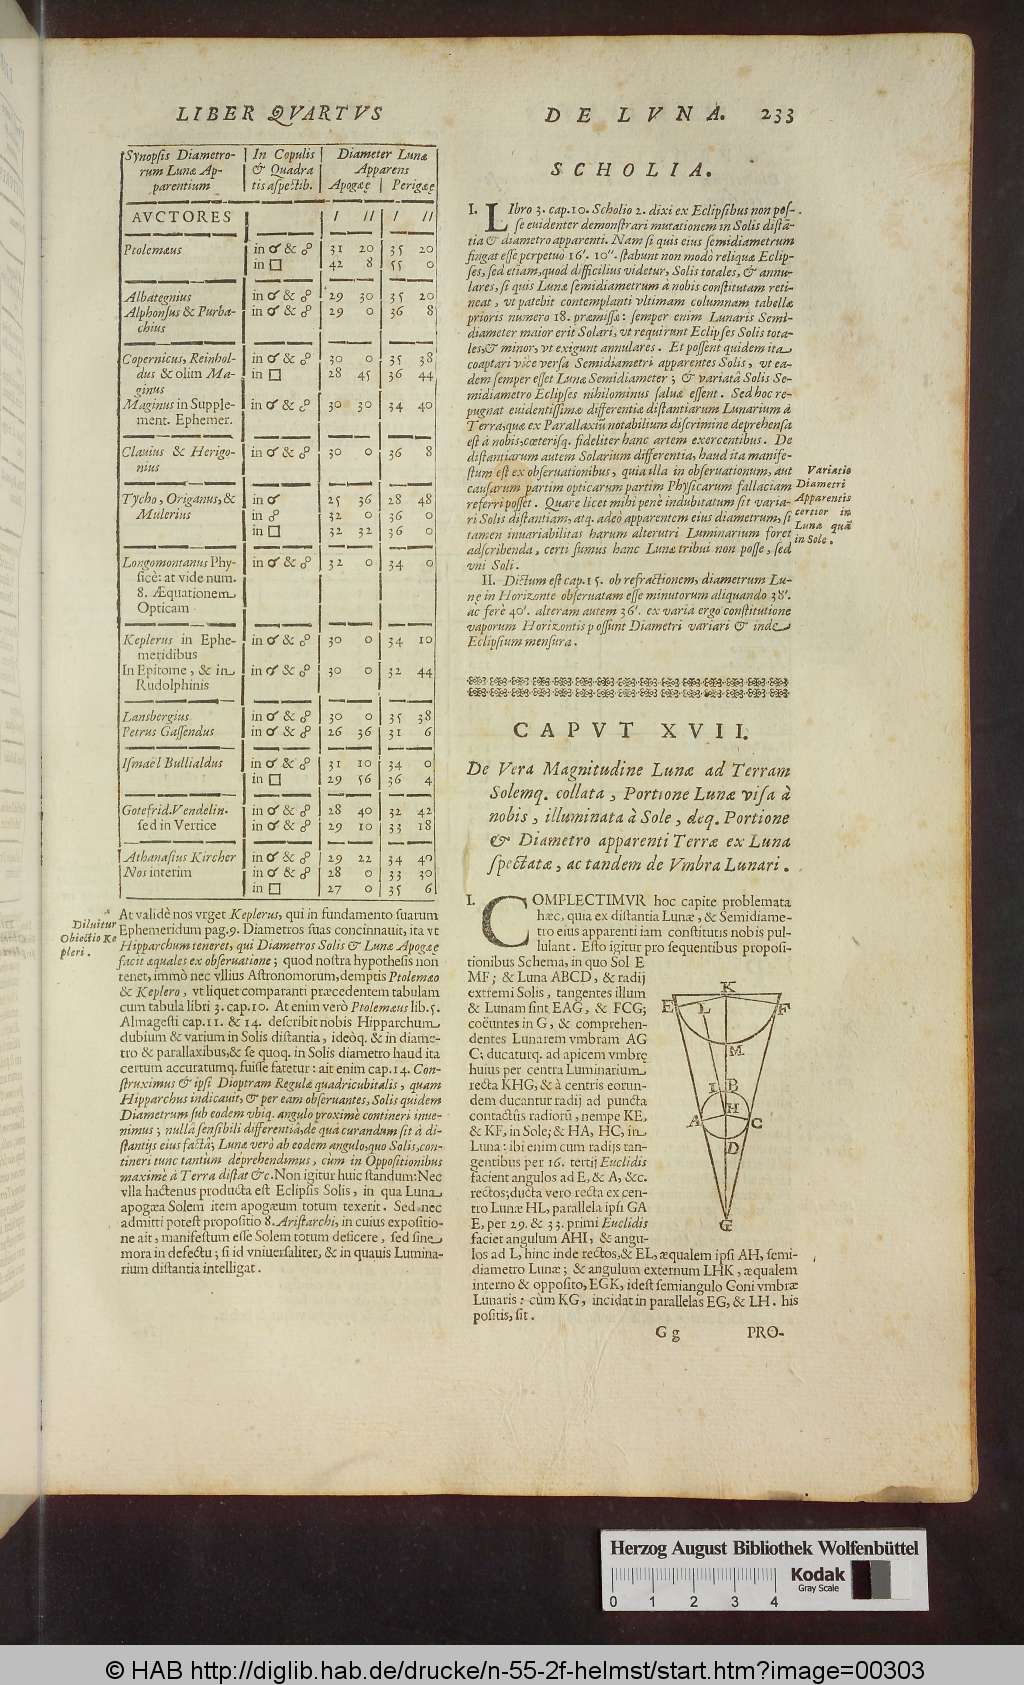 LIBER QVARTVS
DE LVNA. 233
Synopsis Diametro- In Copulis Diameter Lunæ
rum Lunæ Ap- & Quadra Apparens
parentium tis aspectib. Apogææ Perigææ
AVCTORES / // / //
Ptolemæus in ☌ & ☍ 31 20 35 20
in □ 42 8 55 0
Albategnius in ☌ & ☍ 29 30 35 20
Alphonsus & Purba- in ☌ & ☍ 29 0 36 8
chius
Copernicus, Reinhol- in ☌ & ☍ 30 0 35 38
dus & olim Ma- in □ 28 45 36 44
ginus
Maginus in Supple- in ☌ & ☍ 30 30 34 40
ment. Ephemer.
Clauius & Herigo- in ☌ & ☍ 30 0 36 8
nius
Tycho, Origanus, & in ☌ 25 36 28 48
Mulerius in ☍ 32 0 36 0
in □ 32 32 36 0
Longomontanus Phy- in ☌ & ☍ 32 0 34 0
sicè: at vide num.
8. Æquationem
Opticam
Keplerus in Ephe- in ☌ & ☍ 30 0 34 10
meridibus
In Epitome, & in in ☌ & ☍ 30 0 32 44
Rudolphinis
Lansbergius in ☌ & ☍ 30 0 35 38
Petrus Gassendus in ☌ & ☍ 26 36 31 6
Ismaël Bullialdus in ☌ & ☍ 31 10 34 0
in □ 29 56 36 4
Gotefrid. Vendelin. in ☌ & ☍ 28 40 32 42
sed in Vertice in ☌ & ☍ 29 10 33 18
Athanasius Kircher in ☌ & ☍ 29 22 34 40
Nos interim in ☌ & ☍ 28 0 33 30
in □ 27 0 35 6
Diluitur
Obiectio Ke
pleri.
At validè nos vrget Keplerus, qui in fundamento suarum
Ephemeridum pag. 9. Diametros suas concinnauit, ita vt
Hipparchum teneret, qui Diametros Solis & Lunæ Apogææ
facit æquales ex obseruatione; quod nostra hypothesis non
tenet, immò nec vllius Astronomorum, demptis Ptolemæo
& Keplero, vt liquet comparanti præcedentem tabulam
cum tabula libri 3. cap. 10. At enim verò Ptolemæus lib. 5.
Almagesti cap. 11. & 14. describit nobis Hipparchum
dubium & varium in Solis distantia, ideòq. & in diame-
tro & parallaxibus, & se quoq. in Solis diametro haud ita
certum accuratumq. fuisse fatetur: ait enim cap. 14. Con-
struximus & ipsi Dioptram Regulæ quadricubitalis, quam
Hipparchus indicauit, & per eam obseruantes, Solis quidem
Diametrum sub eodem vbiq. angulo proximè contineri inue-
nimus; nullâ sensibili differentiâ, de quâ curandum sit à di-
stantijs eius factâ; Lunæ verò ab eodem angulo, quo Solis, con-
tineri tunc tantùm deprehendimus, cùm in Oppositionibus
maximè à Terra distat &c. Non igitur huic standum: Nec
vlla hactenus producta est Eclipsis Solis, in qua Luna
apogæa Solem item apogæum totum texerit. Sed nec
admitti potest propositio 8. Aristarchi, in cuius expositio-
ne ait, manifestum esse Solem totum deficere, sed sine
mora in defectu; si id vniuersaliter, & in quauis Lumina-
rium distantia intelligat.
SCHOLIA.
I. LIbro 3. cap. 10. Scholio 2. dixi ex Eclipsibus non pos-
se euidenter demonstrari mutationem in Solis distã-
tia & diametro apparenti. Nam si quis eius semidiametrum
fingat esse perpetuò 16'. 10". stabunt non modò reliquæ Eclip-
ses, sed etiam, quod difficilius videtur, Solis totales, & annu-
lares, si quis Lunæ semidiametrum à nobis constitutam reti-
neat, vt patebit contemplanti vltimam columnam tabellæ
prioris numero 18. præmissæ: semper enim Lunaris Semi-
diameter maior erit Solari, vt requirunt Eclipses Solis tota-
les, & minor, vt exigunt annulares. Et possent quidem ita
coaptari vice versa Semidiametri apparentes Solis, vt ea-
dem semper esset Lunæ Semidiameter; & variatâ Solis Se-
midiametro Eclipses nihilominus saluæ essent. Sed hoc re-
pugnat euidentissimæ differentiæ distantiarum Lunarium à
Terra, quæ ex Parallaxiũ notabilium discrimine deprehensa
est à nobis, cæterisq. fideliter hanc artem exercentibus. De
distantiarum autem Solarium differentia, haud ita manife-
stum est ex obseruationibus, quia illa in obseruationum, aut
causarum partim opticarum partim Physicarum fallaciam
referri posset. Quare licet mihi penè indubitatum sit varia-
ri Solis distantiam, atq. adeò apparentem eius diametrum, si
tamen inuariabilitas harum alterutri Luminarium foret
adscribenda, certi sumus hanc Lunæ tribui non posse, sed
vni Soli.
Variatio
Diametri
Apparentis
certior in
Luna quã
in Sole.
II. Dictum est cap. 15. ob refractionem, diametrum Lu-
næ in Horizonte obseruatam esse minutorum aliquando 38'.
ac ferè 40'. alteram autem 36'. ex varia ergo constitutione
vaporum Horizontis possunt Diametri variari & inde
Eclipsium mensura.
CAPVT XVII.
De Vera Magnitudine Lunæ ad Terram
Solemq. collata, Portione Lunæ visa à
nobis, illuminata à Sole, deq. Portione
& Diametro apparenti Terræ ex Luna
spectatæ, ac tandem de Vmbra Lunari.
I. COMPLECTIMVR hoc capite problemata
hæc, quia ex distantia Lunæ, & Semidiame-
tro eius apparenti iam constitutis nobis pul-
lulant. Esto igitur pro sequentibus proposi-
tionibus Schema, in quo Sol E
MF; & Luna ABCD, & radij
extremi Solis, tangentes illum
& Lunam sint EAG, & FCG;
coëuntes in G, & comprehen-
dentes Lunarem vmbram AG
C; ducaturq. ad apicem vmbrę
huius per centra Luminarium
recta KHG, & à centris eorun-
dem ducantur radij ad puncta
contactûs radiorũ, nempe KE,
& KF, in Sole; & HA, HC, in
Luna: ibi enim cum radijs tan-
gentibus per 16. tertij Euclidis
facient angulos ad E, & A, &c.
rectos; ducta vero recta ex cen-
tro Lunæ HL, parallela ipsi GA
E, per 29. & 33. primi Euclidis
faciet angulum AHI, & angu-
los ad L, hinc inde rectos, & EL, æqualem ipsi AH, semi-
diametro Lunæ; & angulum externum LHK, æqualem
interno & opposito, EGK, idest semiangulo Coni vmbræ
Lunaris: cùm KG, incidat in parallelas EG, & LH. his
positis, sit.
K
E L F
M
I B
H
A C
D
G
G g PRO-
Herzog August Bibliothek Wolfenbüttel
0 1 2 3 4
Kodak
Gray Scale
© HAB http://diglib.hab.de/drucke/n-55-2f-helmst/start.htm?image=00303